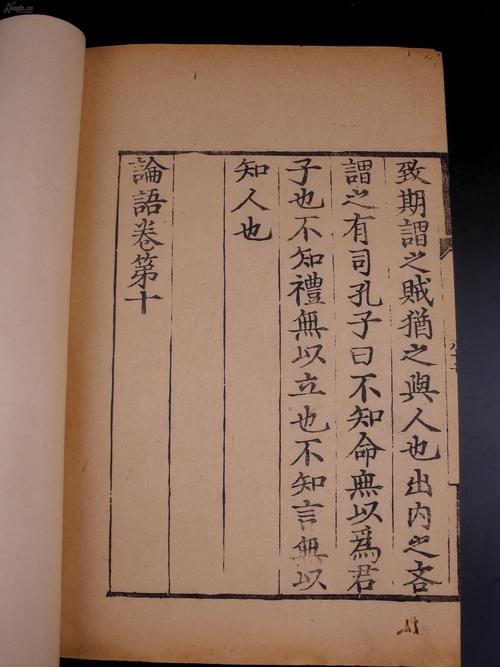 致期謂之賊猶之與人也出内之吝
謂之有司孔子曰不知命無以爲君
子也不知禮無以立也不知言無以
知人也
論語卷第十